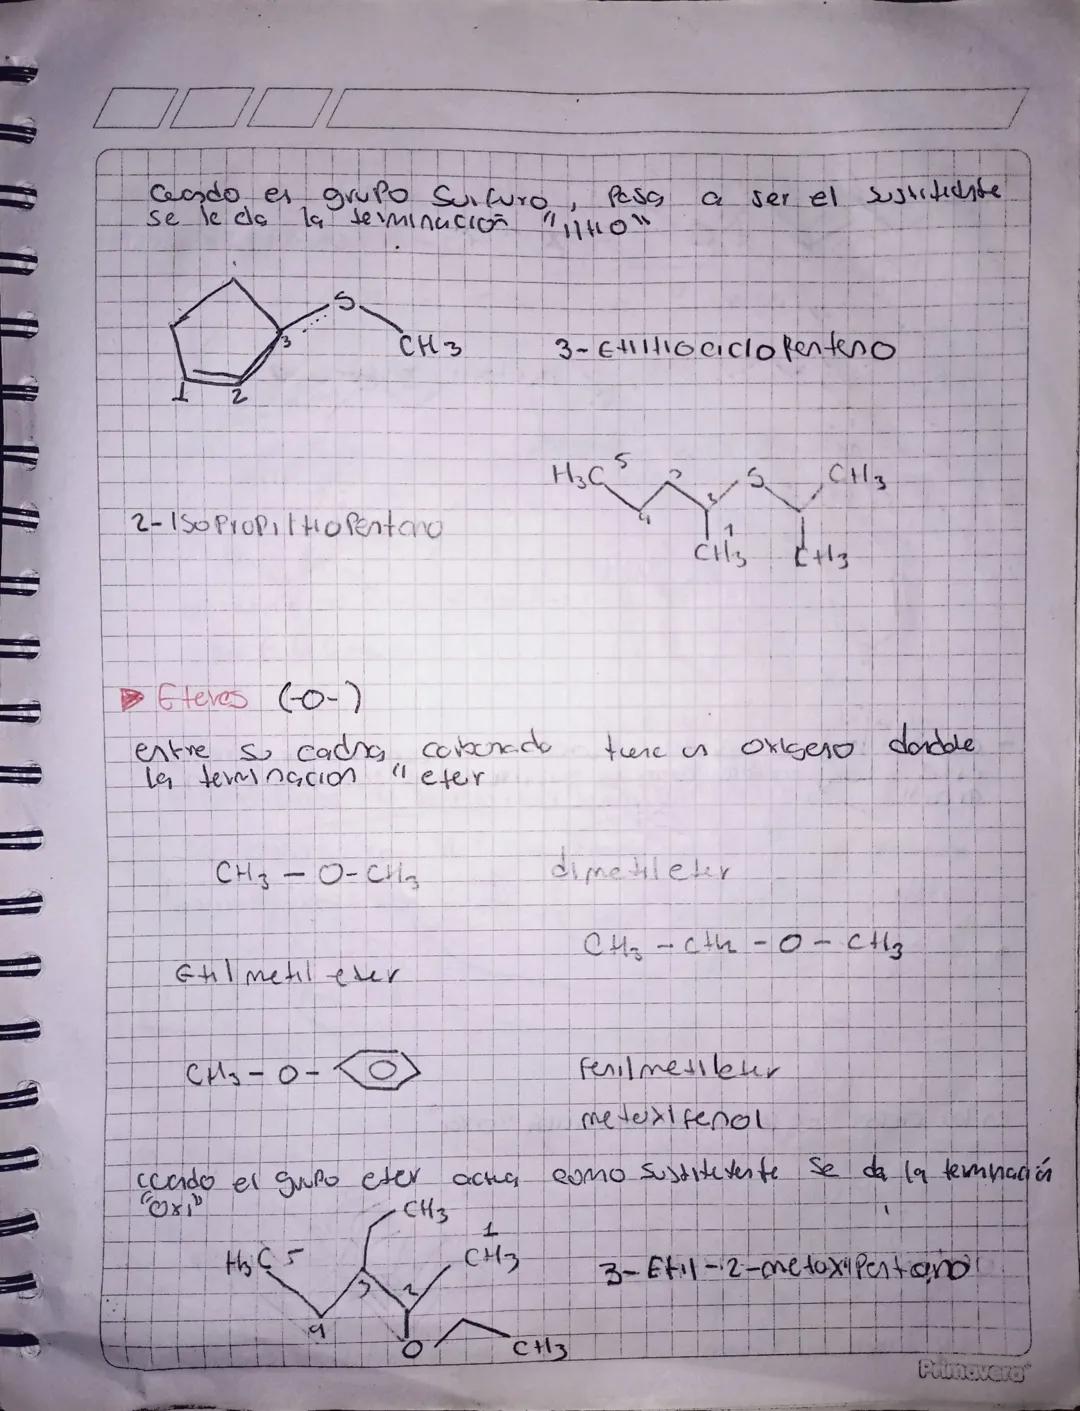 Cuando el grupo Sulfuro, Pasa a ser el sustituente
se le da la terminación "tio"
S
CH3
3
1 2
3-Etiltiociclopenteno
H3C 5 3 S CH3
4 2
CH3 1 CH3
2-Isopropiltiopentano
Eteres (-O-)
entre su cadna carbonada tiene un oxigeno dandole
la terminacion " eter
CH3 - O - CH3 dimetileter
CH3 - CH2 - O - CH3
Etil metil eter
CH3 - O - fenilmetileter
metoxifenol
cuando el grupo eter actua como sustituente se da la terminación
"oxi"
CH3
1
H3C 5 CH3
3 2
4
O CH3
3-Etil-2-metoxipentano
Primavera